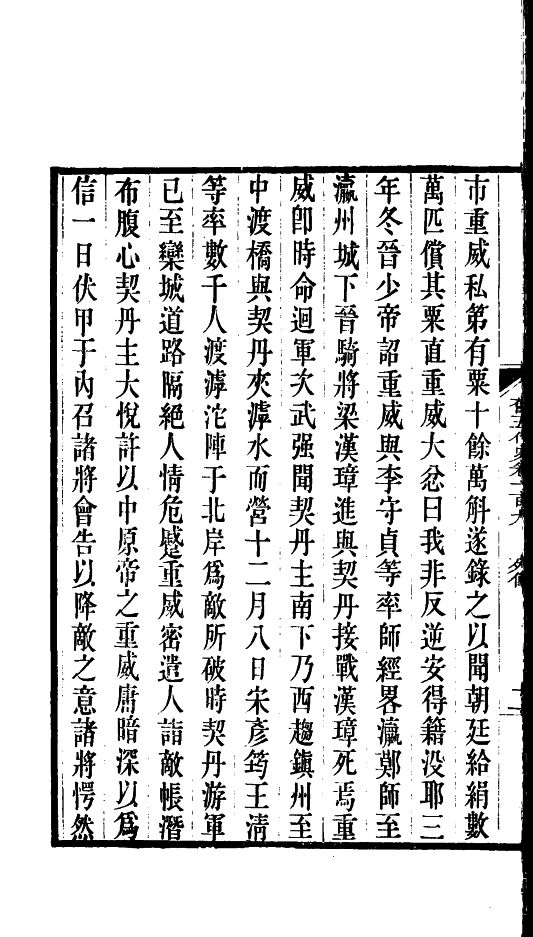 市重威私第有粟十餘萬斛遂錄之以聞朝廷給絹數
萬匹償其粟直重威大忿曰我非反逆安得籍没耶三
年冬晉少帝詔重威與李守貞等率師經畧瀛鄚師至
瀛州城下晉騎將梁漢璋進與契丹接戰漢璋死焉重
威卽時命迴軍次武强聞契丹主南下乃西趨鎭州至
中渡橋與契丹夾滹水而營十二月八日宋彥筠王淸
等率數千人渡滹沱陣于北岸爲敵所破時契丹游軍
已至欒城道路隔絕人情危蹙重威密遣人詣敵帳潛
布腹心契丹主大悅許以中原帝之重威庸暗深以爲
信一日伏甲于內召諸將會告以降敵之意諸將愕然